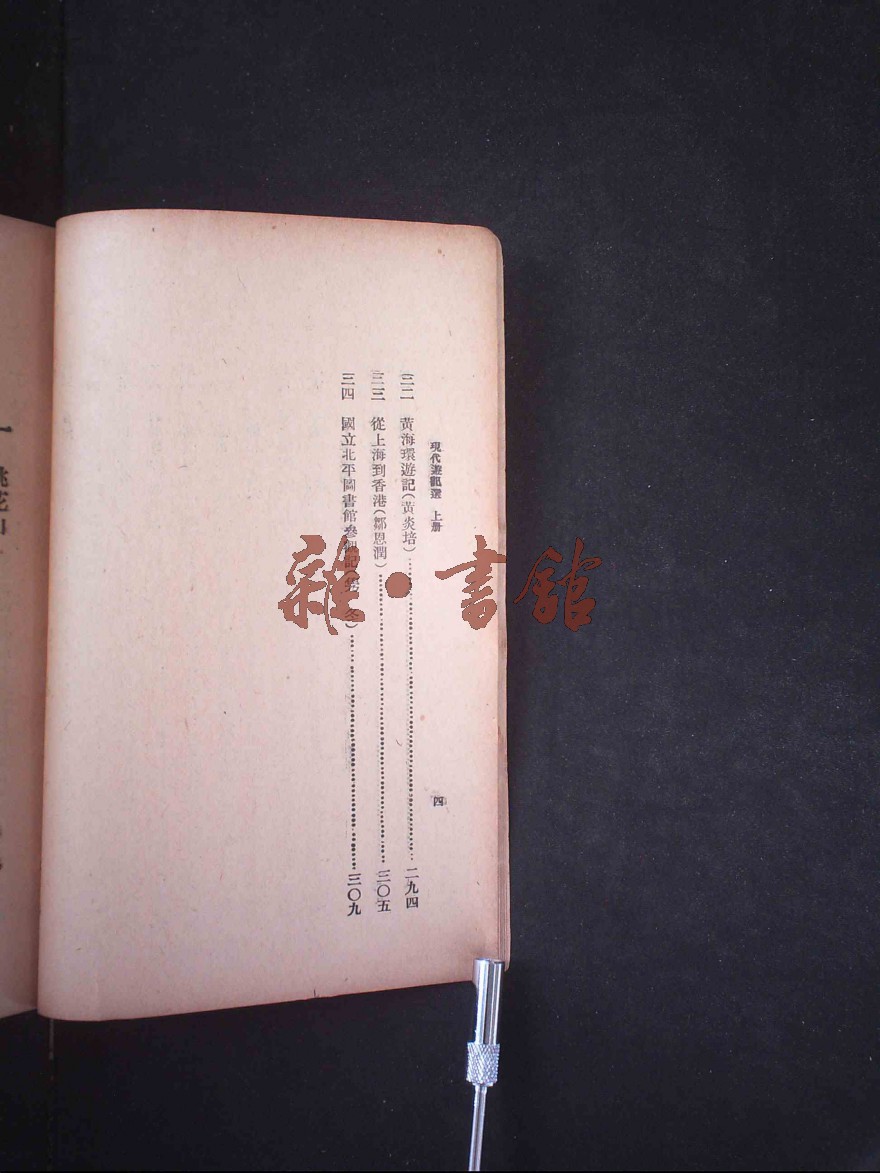 現代遊記選 上册
四
三二 黃海環遊記(黃炎培)……二九四
三三 從上海到香港(鄒恩潤)……三〇五
三四 國立北平圖書館參觀記(冬)……三〇九
一 桃花
雜·書館